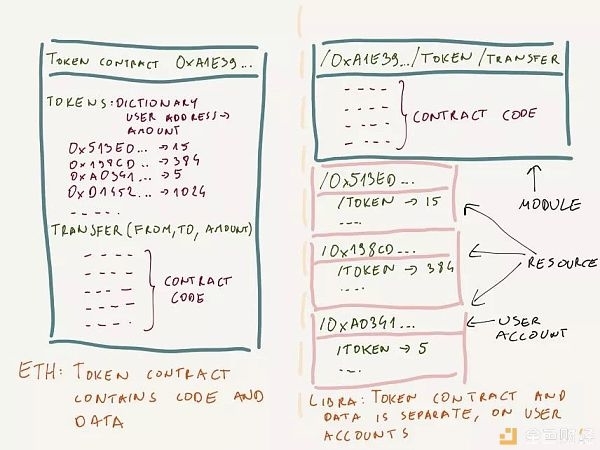 TOKEN CONTRACT 0xA1E39...
TOKENS: DICTIONARY
USER ADDRESS →
AMOUNT
0x513ED... → 15
0x198CD... → 384
0xA0341... → 5
0xD1452... → 1024
.....
TRANSFER (FROM, TO, AMOUNT)
CONTRACT
CODE
ETH: TOKEN CONTRACT
CONTAINS CODE AND
DATA
/0xA1E39.../TOKEN/TRANSFER
CONTRACT CODE
MODULE
/0x513ED...
/TOKEN → 15
....
/0x198CD...
/TOKEN → 384
....
RESOURCE
/0xA0341...
/TOKEN → 5
....
USER
ACCOUNT
LIBRA: TOKEN CONTRACT AND
DATA IS SEPARATE, ON USER
ACCOUNTS
金色财经